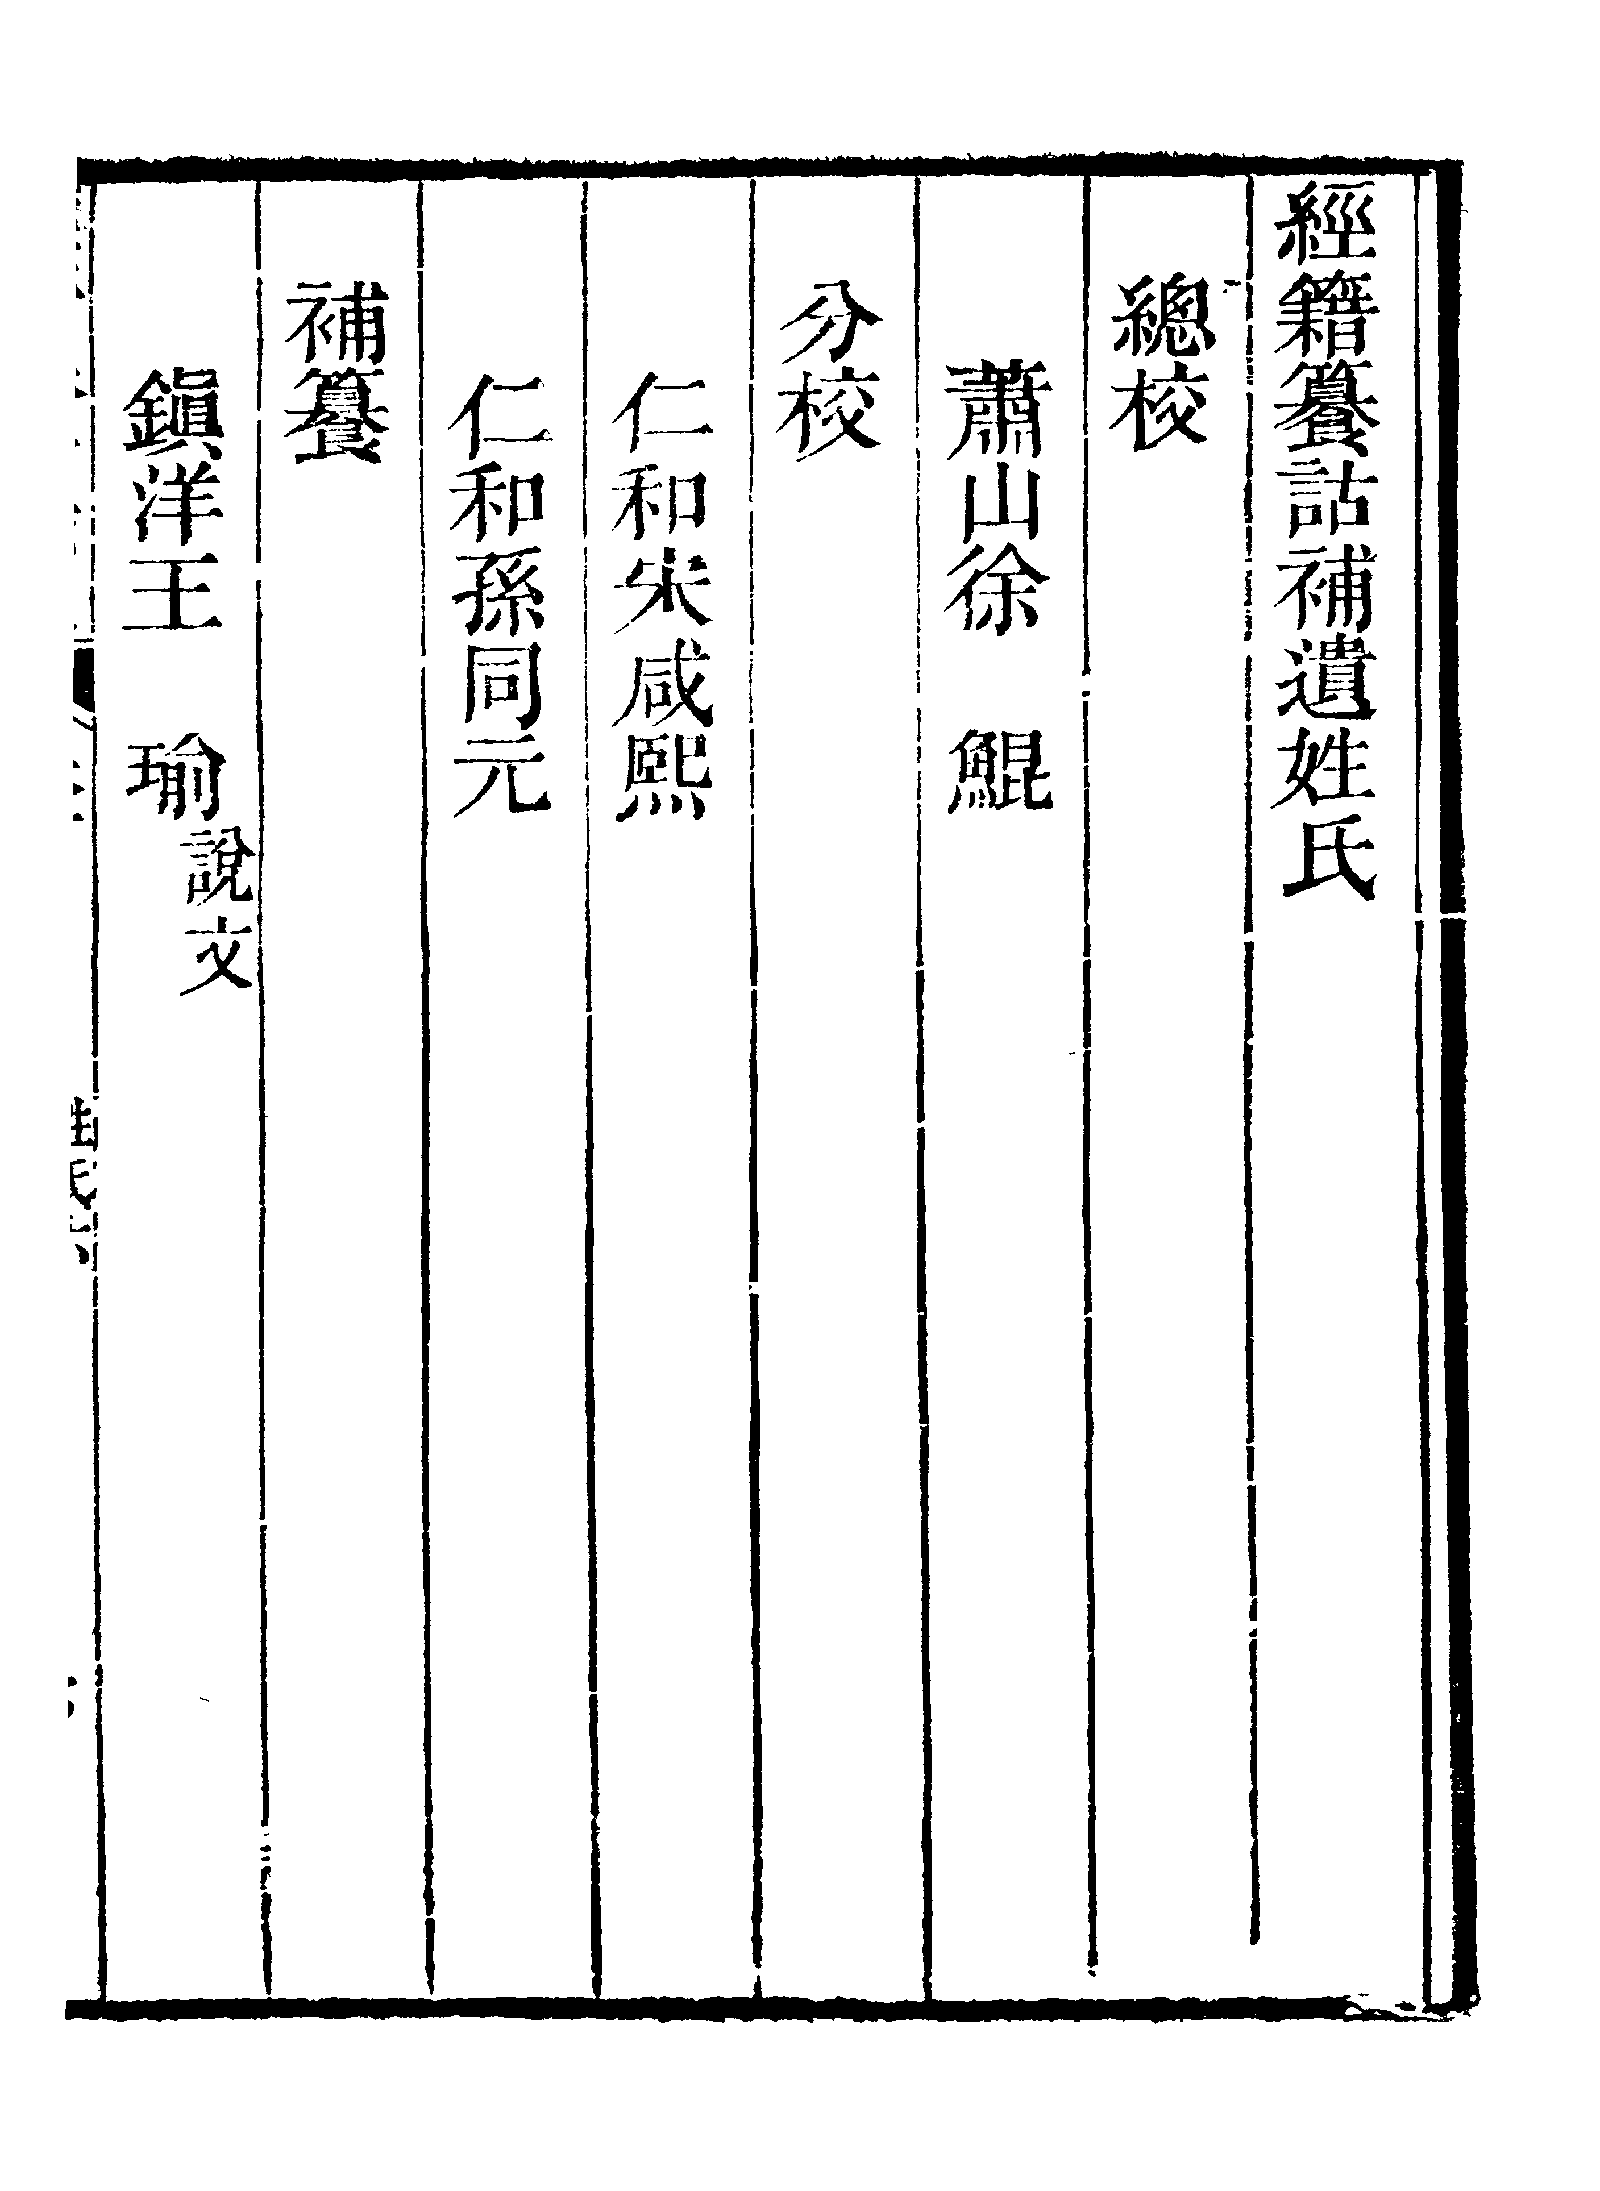 經籍籑詁補遺姓氏
總校
蕭山徐　鯤
分校
仁和宋咸熙
仁和孫同元
補籑
鎭洋王　瑜說文
姓氏